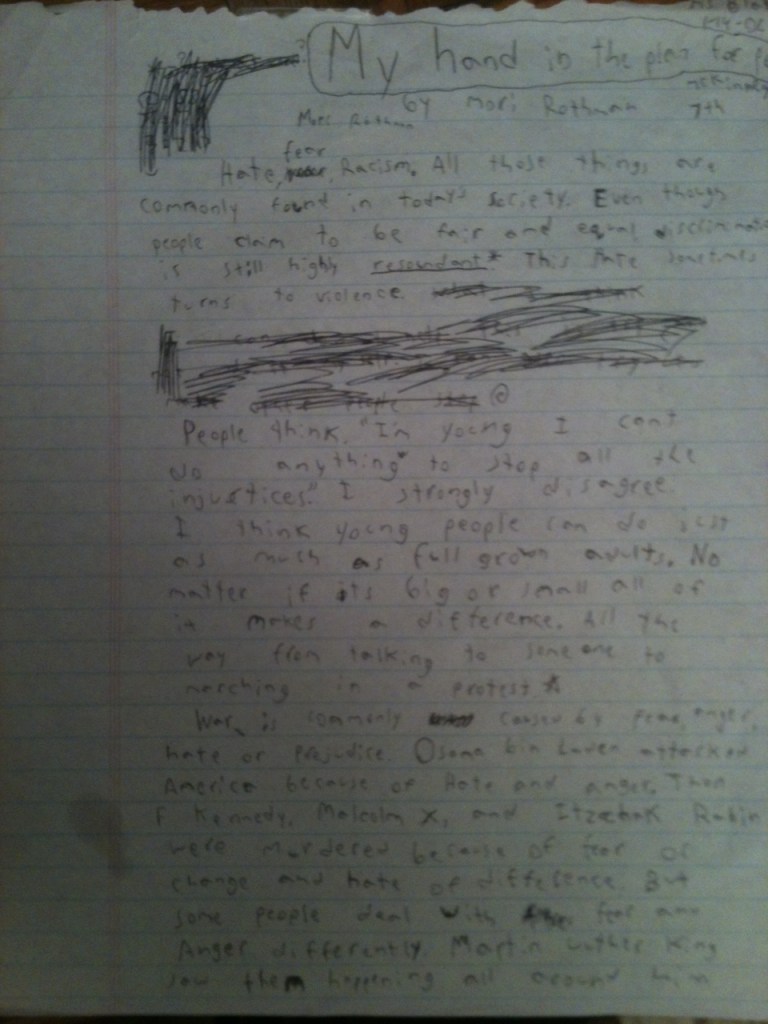 My hand in the plan for
by Mori Rothman 7th
Mori Rothman
fear
Hate, , Racism. All those things are
commonly found in todays society. Even though
people claim to be fair and equal
is still highly resoundant* This hate sometimes
turns to violence.
People think, "I'm young I can't
do anything" to stop all the
injustices." I strongly disagree.
I think young people can do just
as much as full grown avults. No
matter if its big or small all of
it makes a difference. All the
way from talking to someone to
marching in a protest *
War, is commonly caused by fear, anger,
hate or prejudice. Osama bin Laven attacked
America because of Hate and anger.
F Kennedy, Malcolm X, and Itzechak Rabin
were murdered because of fear of
change and hate of difference. But
some people deal with fear and
Anger differently. Martin Luther King
saw them happening all around him